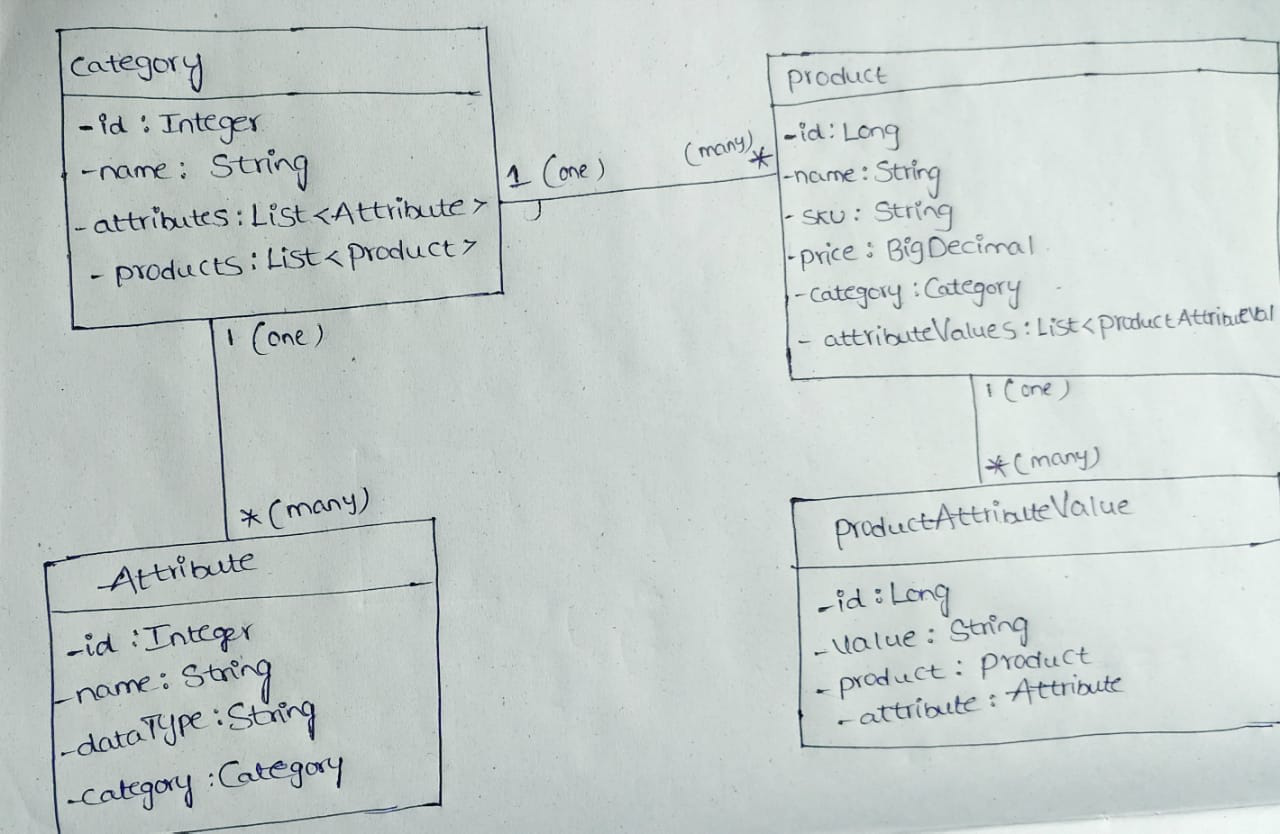 Category
-id : Integer
-name : String
-attributes : List<Attribute>
- products : List<product>
1 (one)
(many) *
product
-id : Long
-name : String
- SKU : String
-price : BigDecimal
-category : Category
- attributeValues : List<productAttributeVal
1 (one)
* (many)
Attribute
-id : Integer
-name : String
-dataType : String
-category : Category
1 (one)
* (many)
productAttributeValue
-id : Long
-value : String
- product : product
- attribute : Attribute